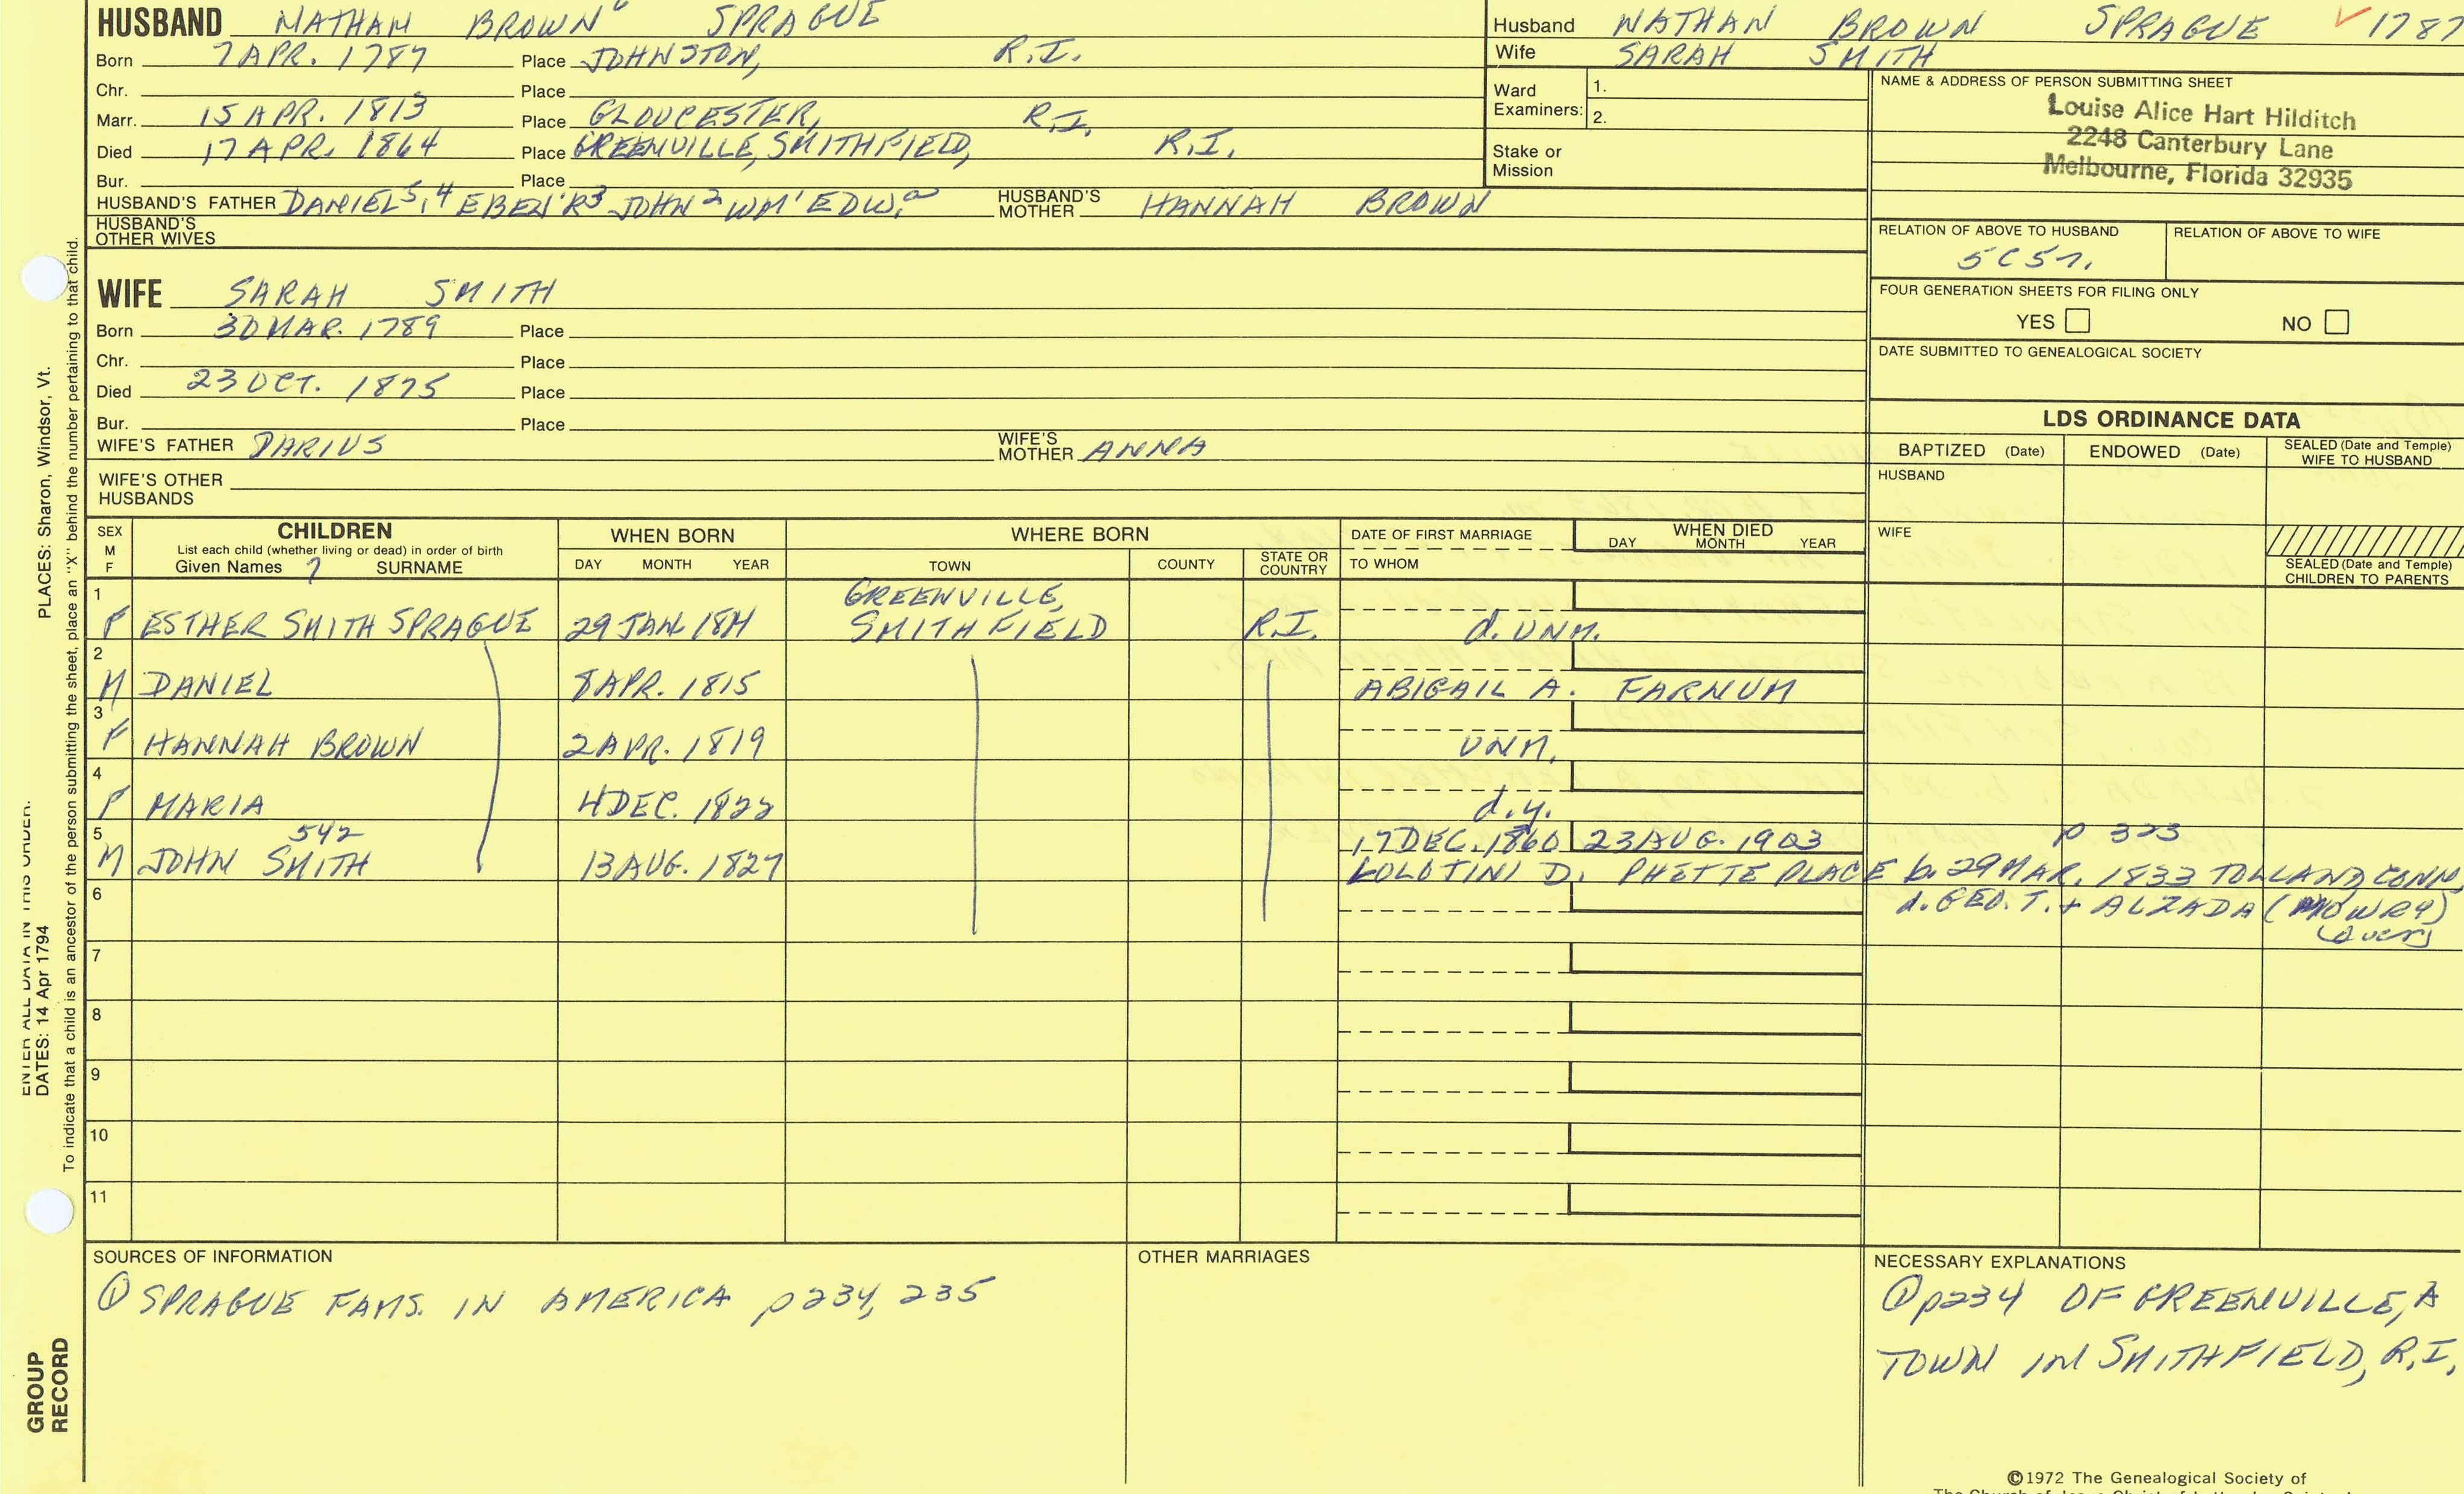 HUSBAND NATHAN BROWN 6 SPRAGUE
Born 7 APR. 1787 Place JOHNSTON, R.I.
Chr. Place
Marr. 15 APR. 1813 Place GLOUCESTER, R.I.
Died 17 APR. 1864 Place GREENVILLE, SMITHFIELD, R.I.
Bur. Place
HUSBAND'S FATHER DANIEL 5, 4 EBEN'R 3 JOHN 2 WM 1 EDW. a HUSBAND'S MOTHER HANNAH BROWN
HUSBAND'S OTHER WIVES
Husband NATHAN BROWN SPRAGUE ✓ 1787
Wife SARAH SMITH
Ward Examiners: 1.
2.
Stake or Mission
NAME & ADDRESS OF PERSON SUBMITTING SHEET
Louise Alice Hart Hilditch
2248 Canterbury Lane
Melbourne, Florida 32935
RELATION OF ABOVE TO HUSBAND RELATION OF ABOVE TO WIFE
5C5r.
FOUR GENERATION SHEETS FOR FILING ONLY
YES NO
DATE SUBMITTED TO GENEALOGICAL SOCIETY
WIFE SARAH SMITH
Born 30 MAR. 1789 Place
Chr. Place
Died 23 OCT. 1875 Place
Bur. Place
WIFE'S FATHER DARIUS WIFE'S MOTHER ANNA
WIFE'S OTHER HUSBANDS
LDS ORDINANCE DATA
BAPTIZED (Date) ENDOWED (Date) SEALED (Date and Temple) WIFE TO HUSBAND
HUSBAND
WIFE
SEALED (Date and Temple) CHILDREN TO PARENTS
SEX M F CHILDREN WHEN BORN WHERE BORN DATE OF FIRST MARRIAGE WHEN DIED
List each child (whether living or dead) in order of birth DAY MONTH YEAR
Given Names 7 SURNAME DAY MONTH YEAR TOWN COUNTY STATE OR COUNTRY TO WHOM
1 GREENVILLE,
F ESTHER SMITH SPRAGUE 29 JAN. 1814 SMITHFIELD R.I. d. UNM.
2
M DANIEL 8 APR. 1815 ABIGAIL A. FARNUM
3
F HANNAH BROWN 2 APR. 1819 UNM.
4
F MARIA 4 DEC. 1822 d.y.
5 542 17 DEC. 1860 23 AUG. 1903 p 323
M JOHN SMITH 13 AUG. 1827 LOLOTINI D. PHETTEPLACE b. 29 MAR. 1833 TOLLAND, CONN,
6 d. GEO. T. + ALZADA (MOWRY)
(over)
7
8
9
10
11
SOURCES OF INFORMATION
① SPRAGUE FAMS. IN AMERICA p234, 235
OTHER MARRIAGES
NECESSARY EXPLANATIONS
① p234 OF GREENVILLE, A
TOWN IN SMITHFIELD, R.I.
©1972 The Genealogical Society of
PLACES: Sharon, Windsor, Vt.
ENTER ALL DATA IN THIS ORDER:
DATES: 14 Apr 1794
To indicate that a child is an ancestor of the person submitting the sheet, place an "X" behind the number pertaining to that child.
GROUP
RECORD